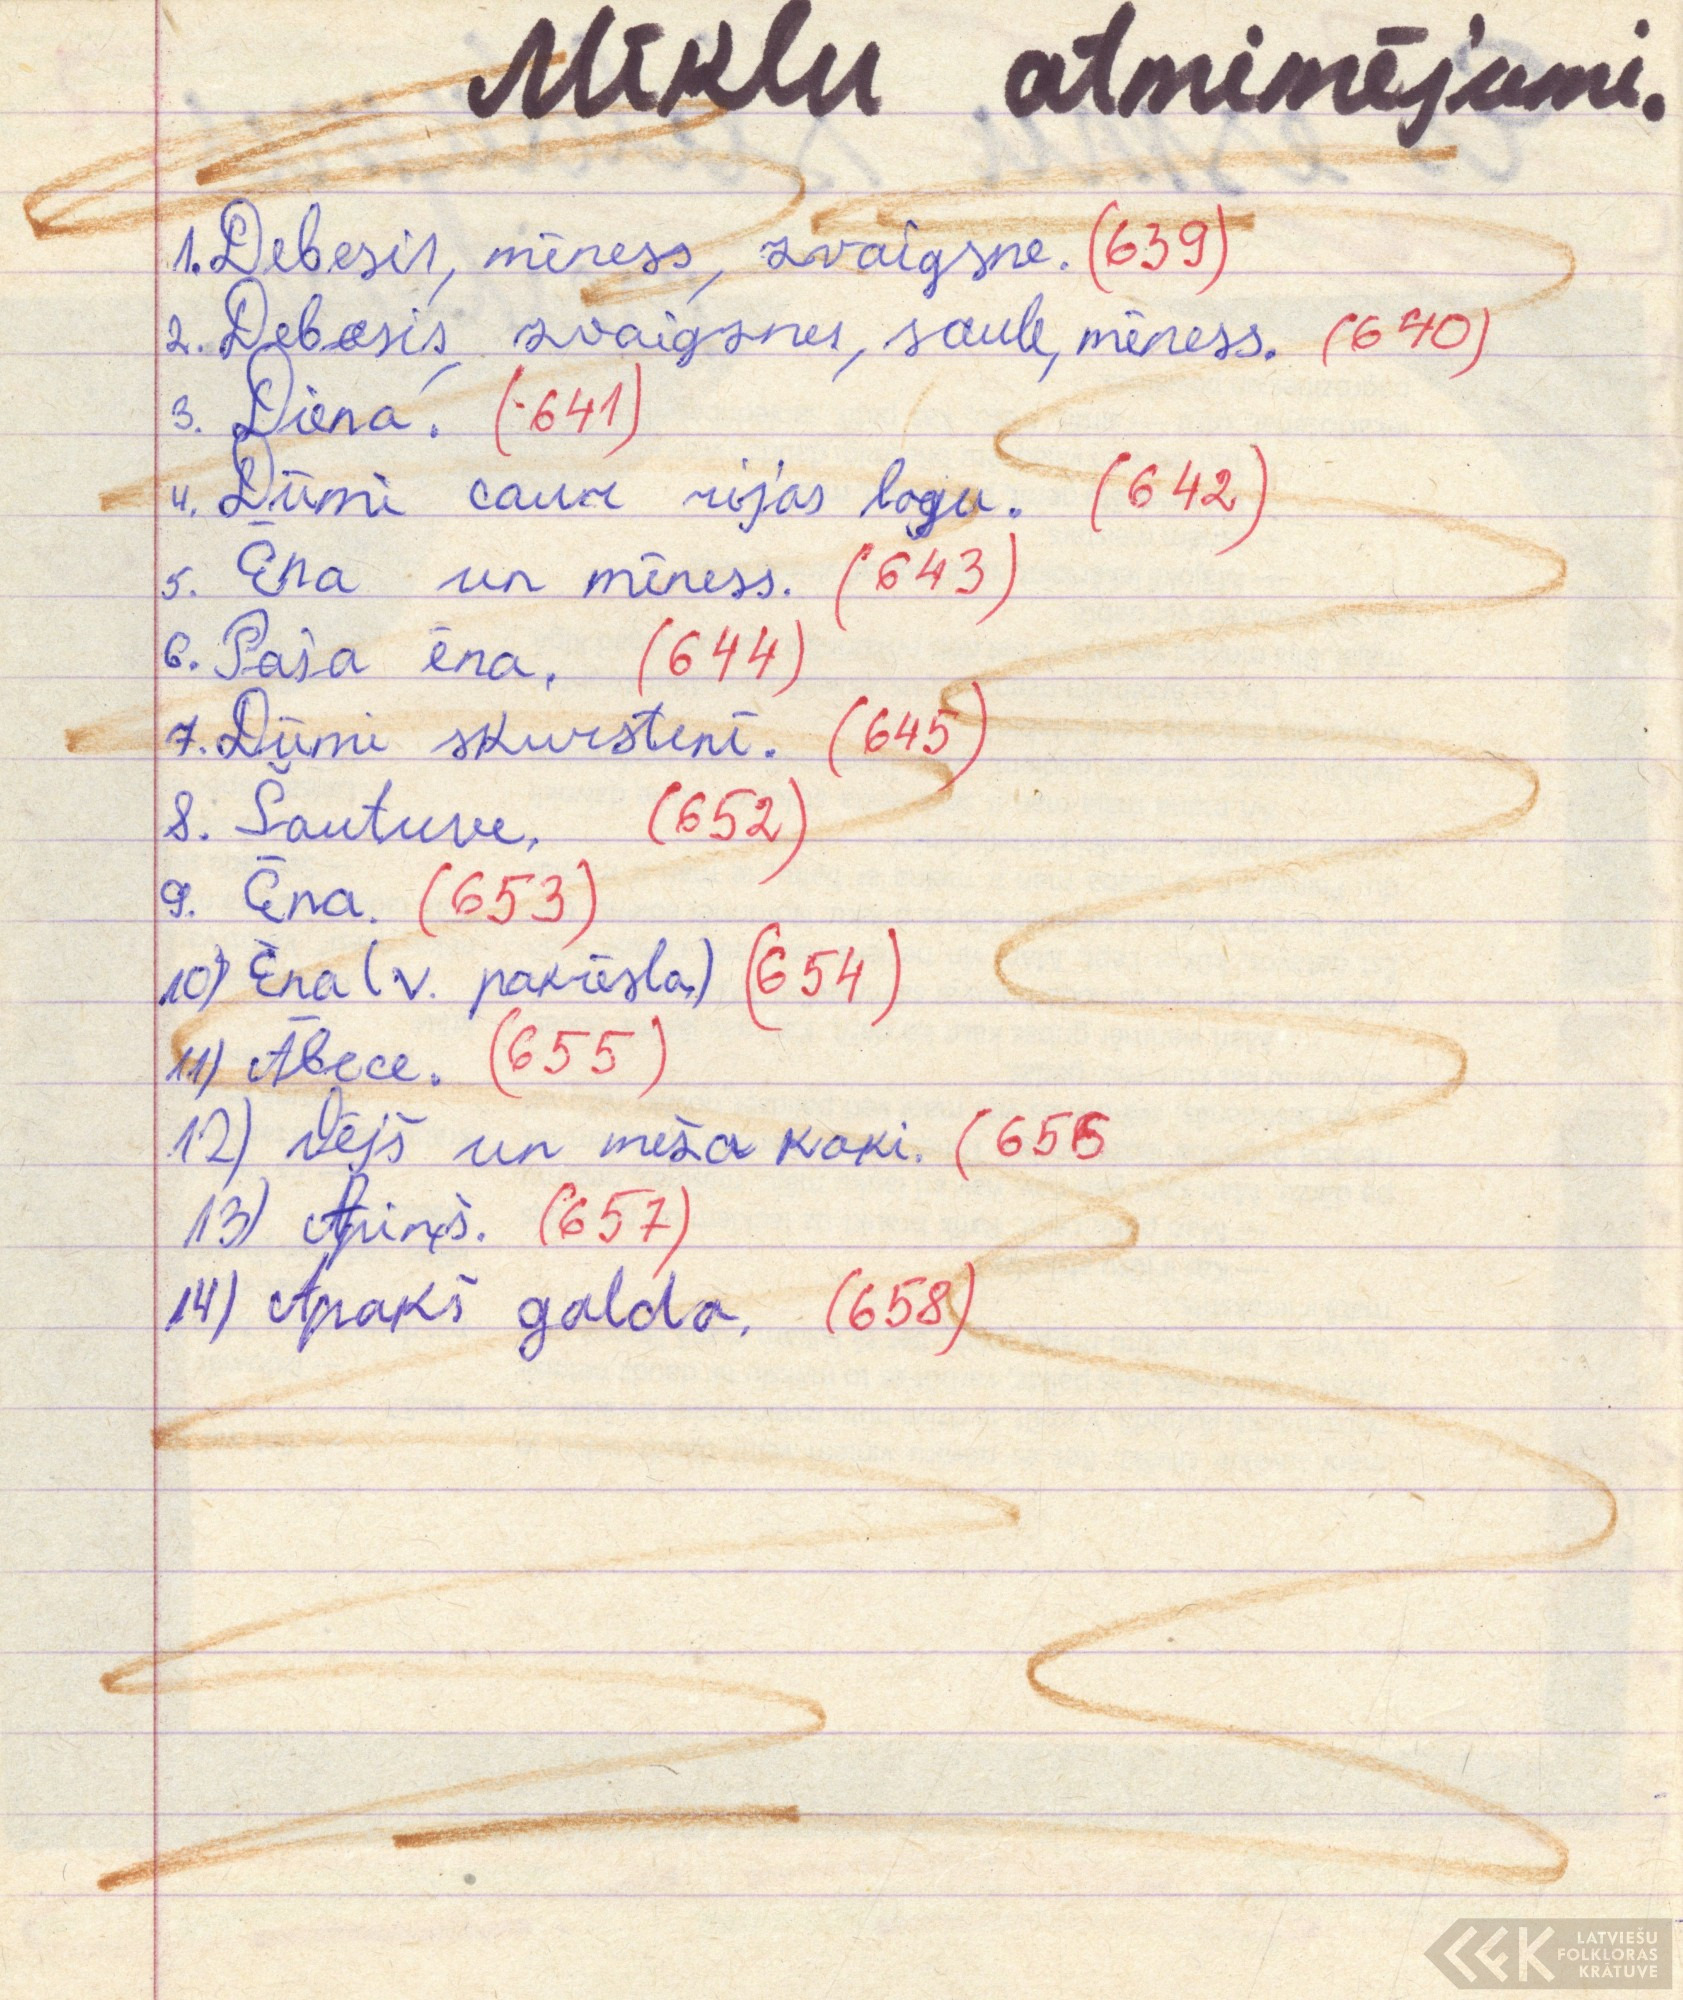 Mīklu atminējumi.
1. Debesis, mēness, zvaigsne. (639)
2. Debesis, zvaigznes, saule, mēness. (640)
3. Diena. (641)
4. Dūmi caur rijas logu. (642)
5. Ēna un mēness. (643)
6. Paša ēna. (644)
7. Dūmi skurstenī. (645)
8. Šautuve. (652)
9. Ēna. (653)
10) Ēna (v. pakrēsla) (654)
11) Ābece. (655)
12) Vējš un meža koki. (656
13) Apiņš. (657)
14) Apakš galda. (658)
LATVIEŠU
FOLKLORAS
KRĀTUVE